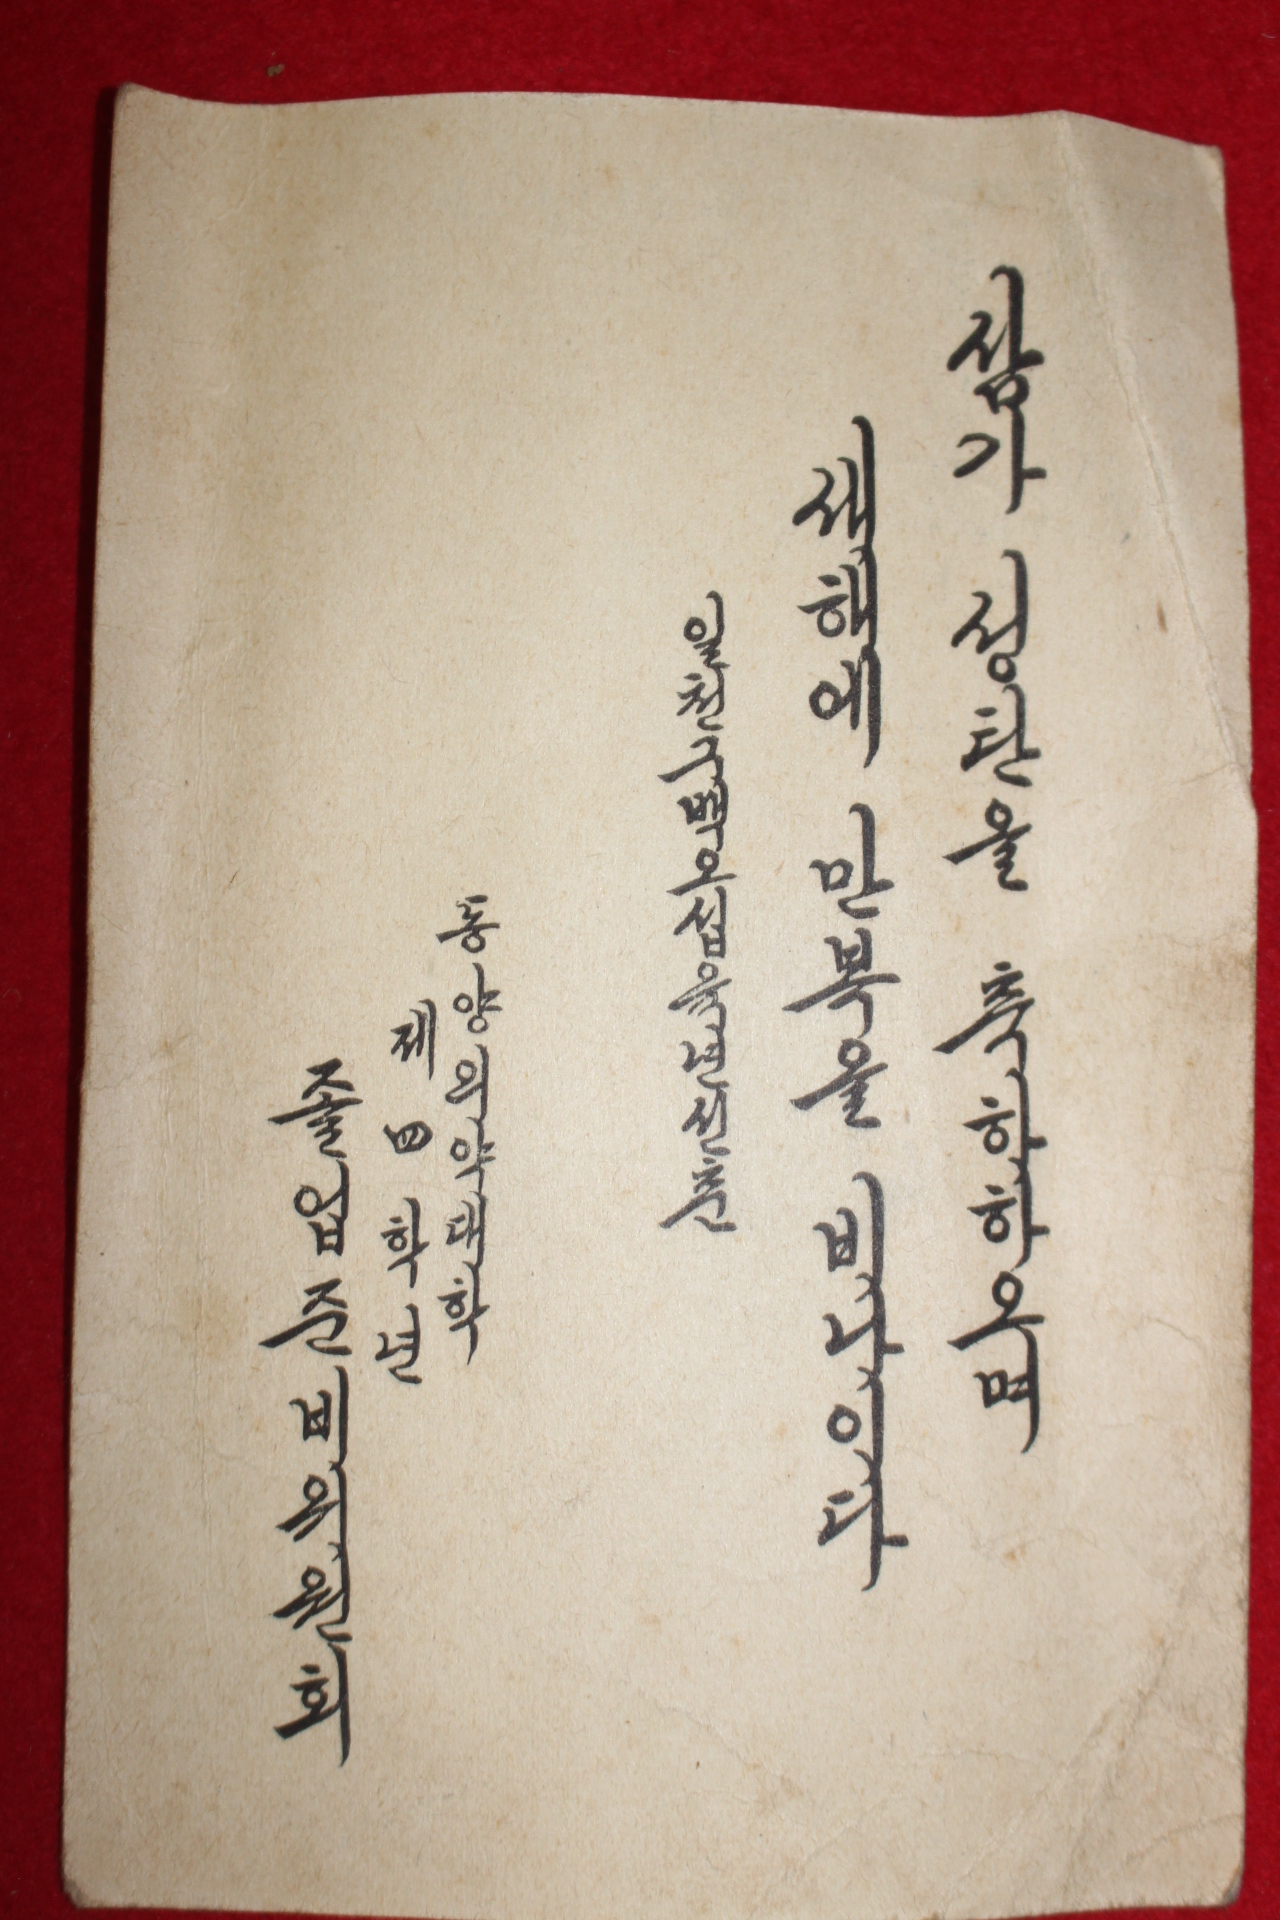 삼가 성탄을 축하하오며
새해에 만복을 비나이다
일천구백오십육년신춘
동양
제
졸업준비위원회